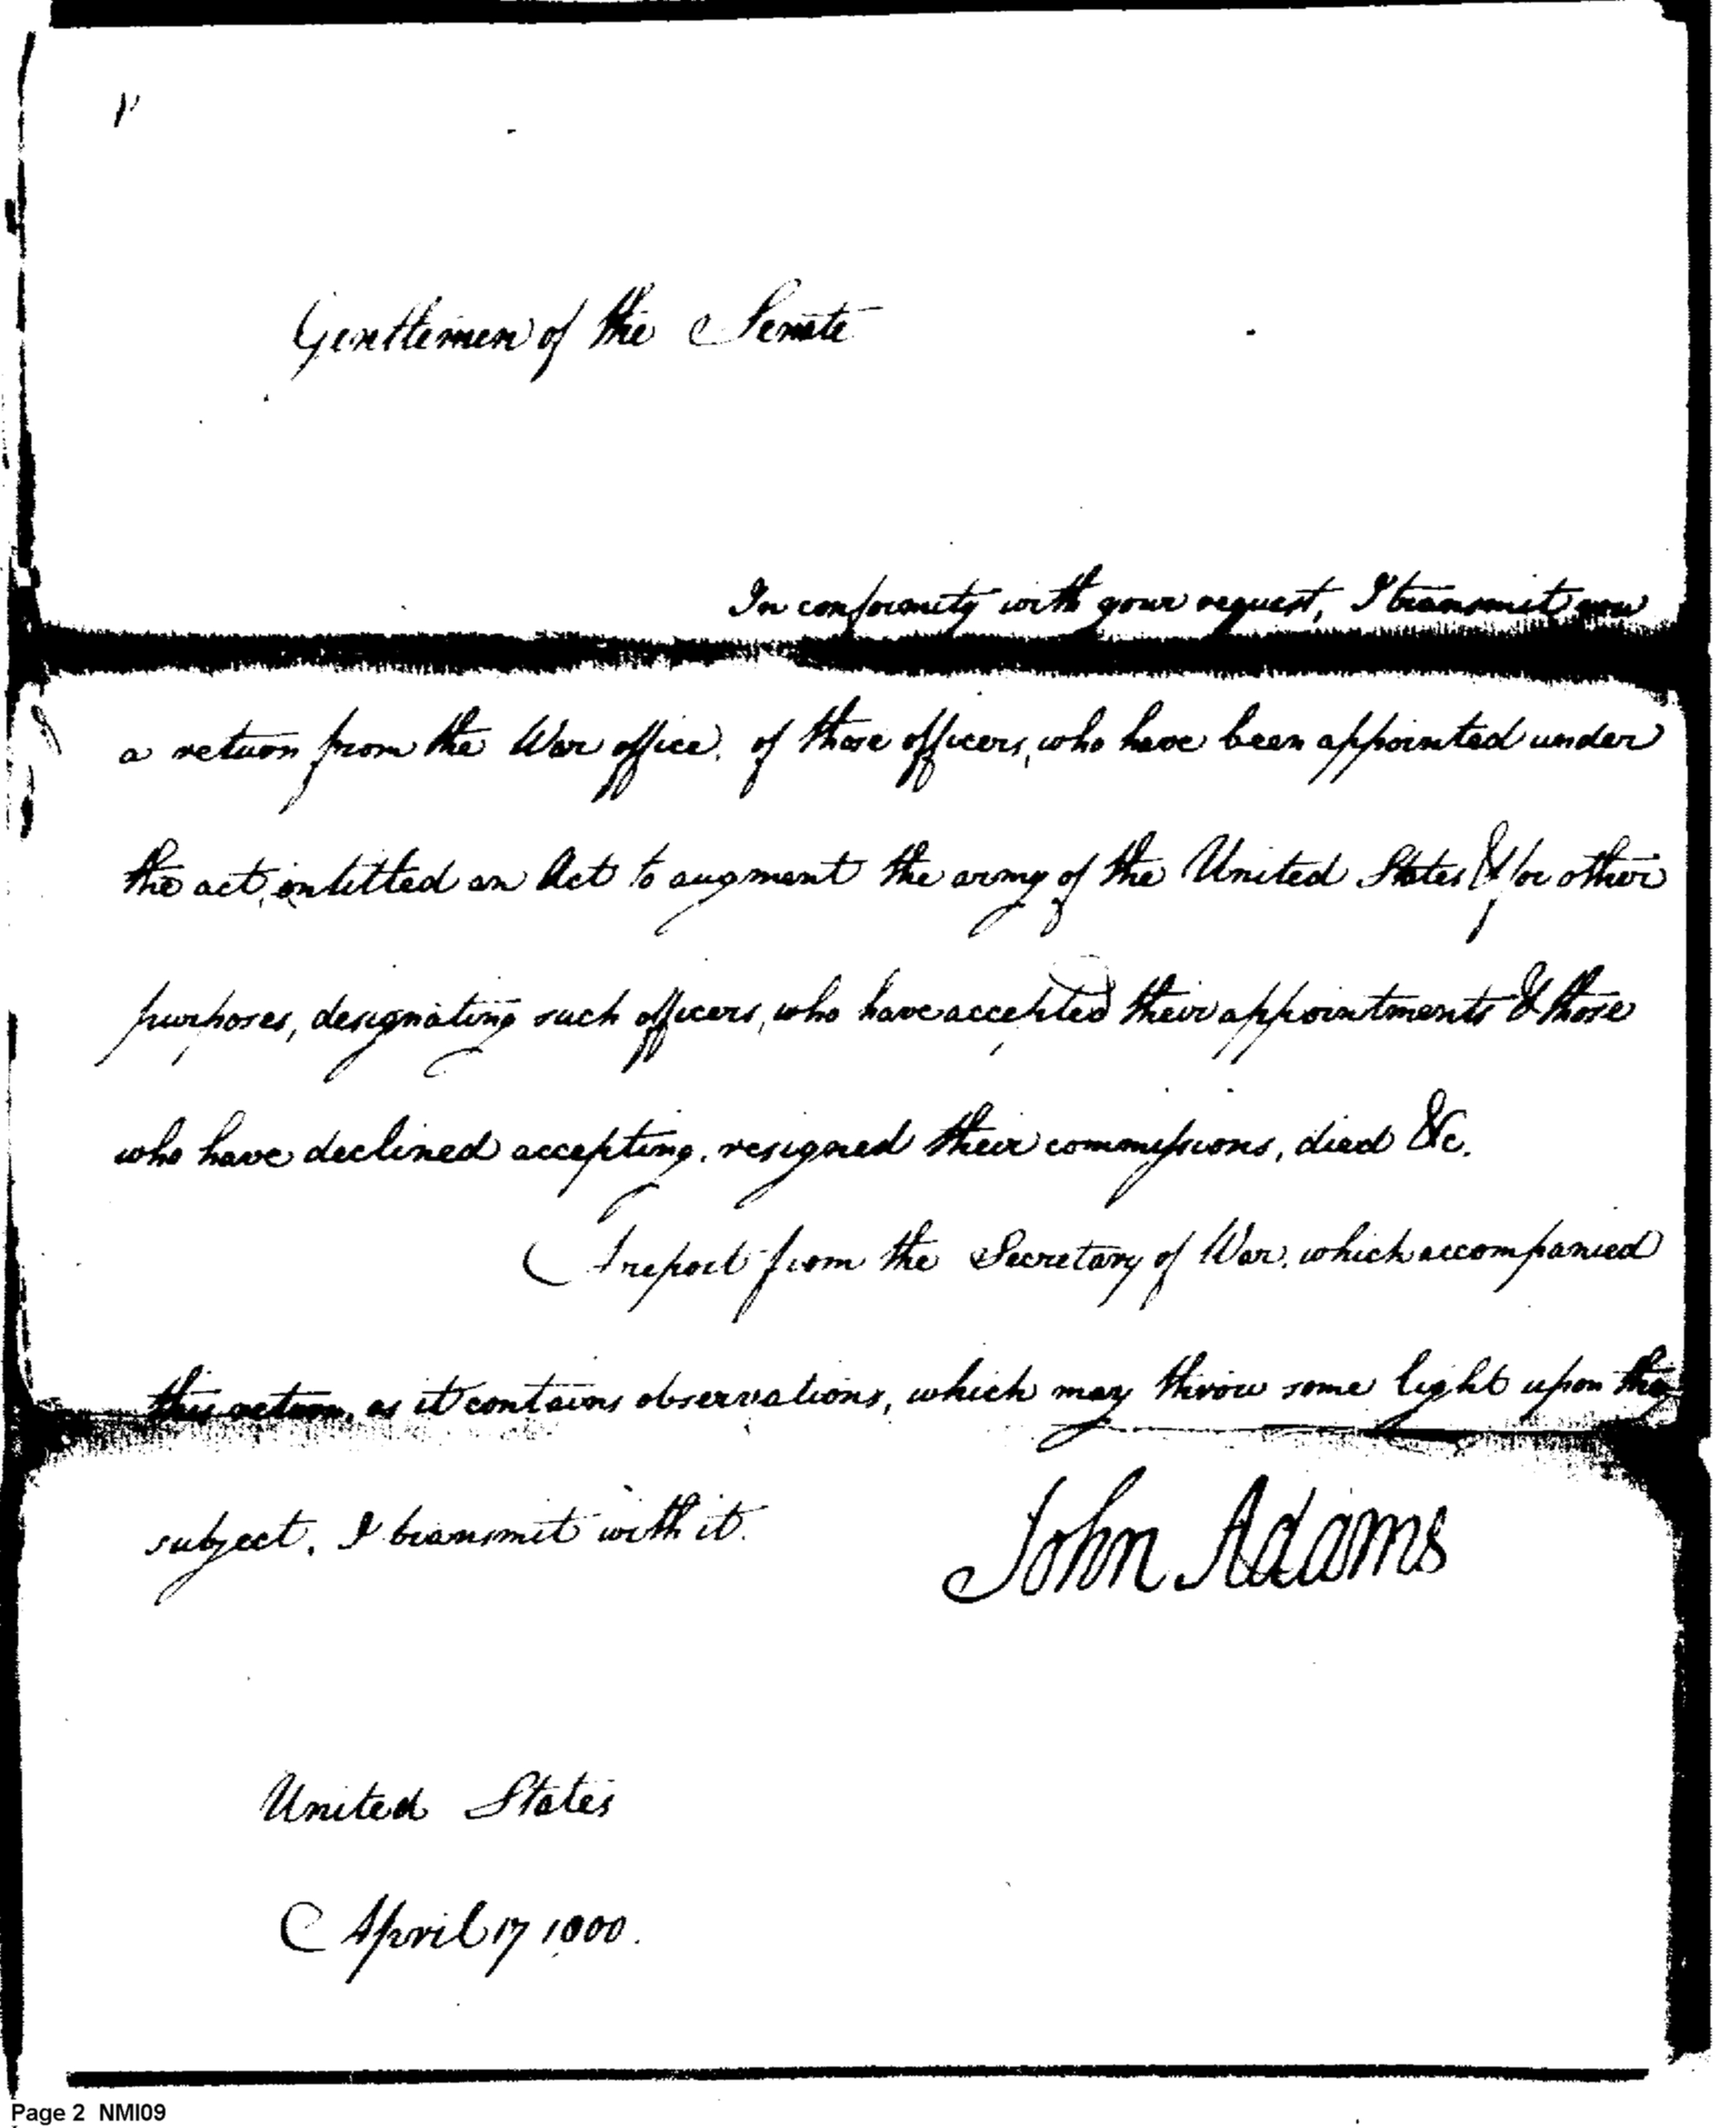 Gentlemen of the Senate
In conformity with your request, I transmit you
a return from the War office, of those officers, who have been appointed under
the act, intitled an Act to augment the army of the United States & for other
purposes, designating such officers, who have accepted their appointments & those
who have declined accepting, resigned their commissions, died &c.
A report from the Secretary of War, which accompanied
this return, as it contains observations, which may throw some light upon the
subject, I transmit with it.
John Adams
United States
April 17 1800.
Page 2 NMI09